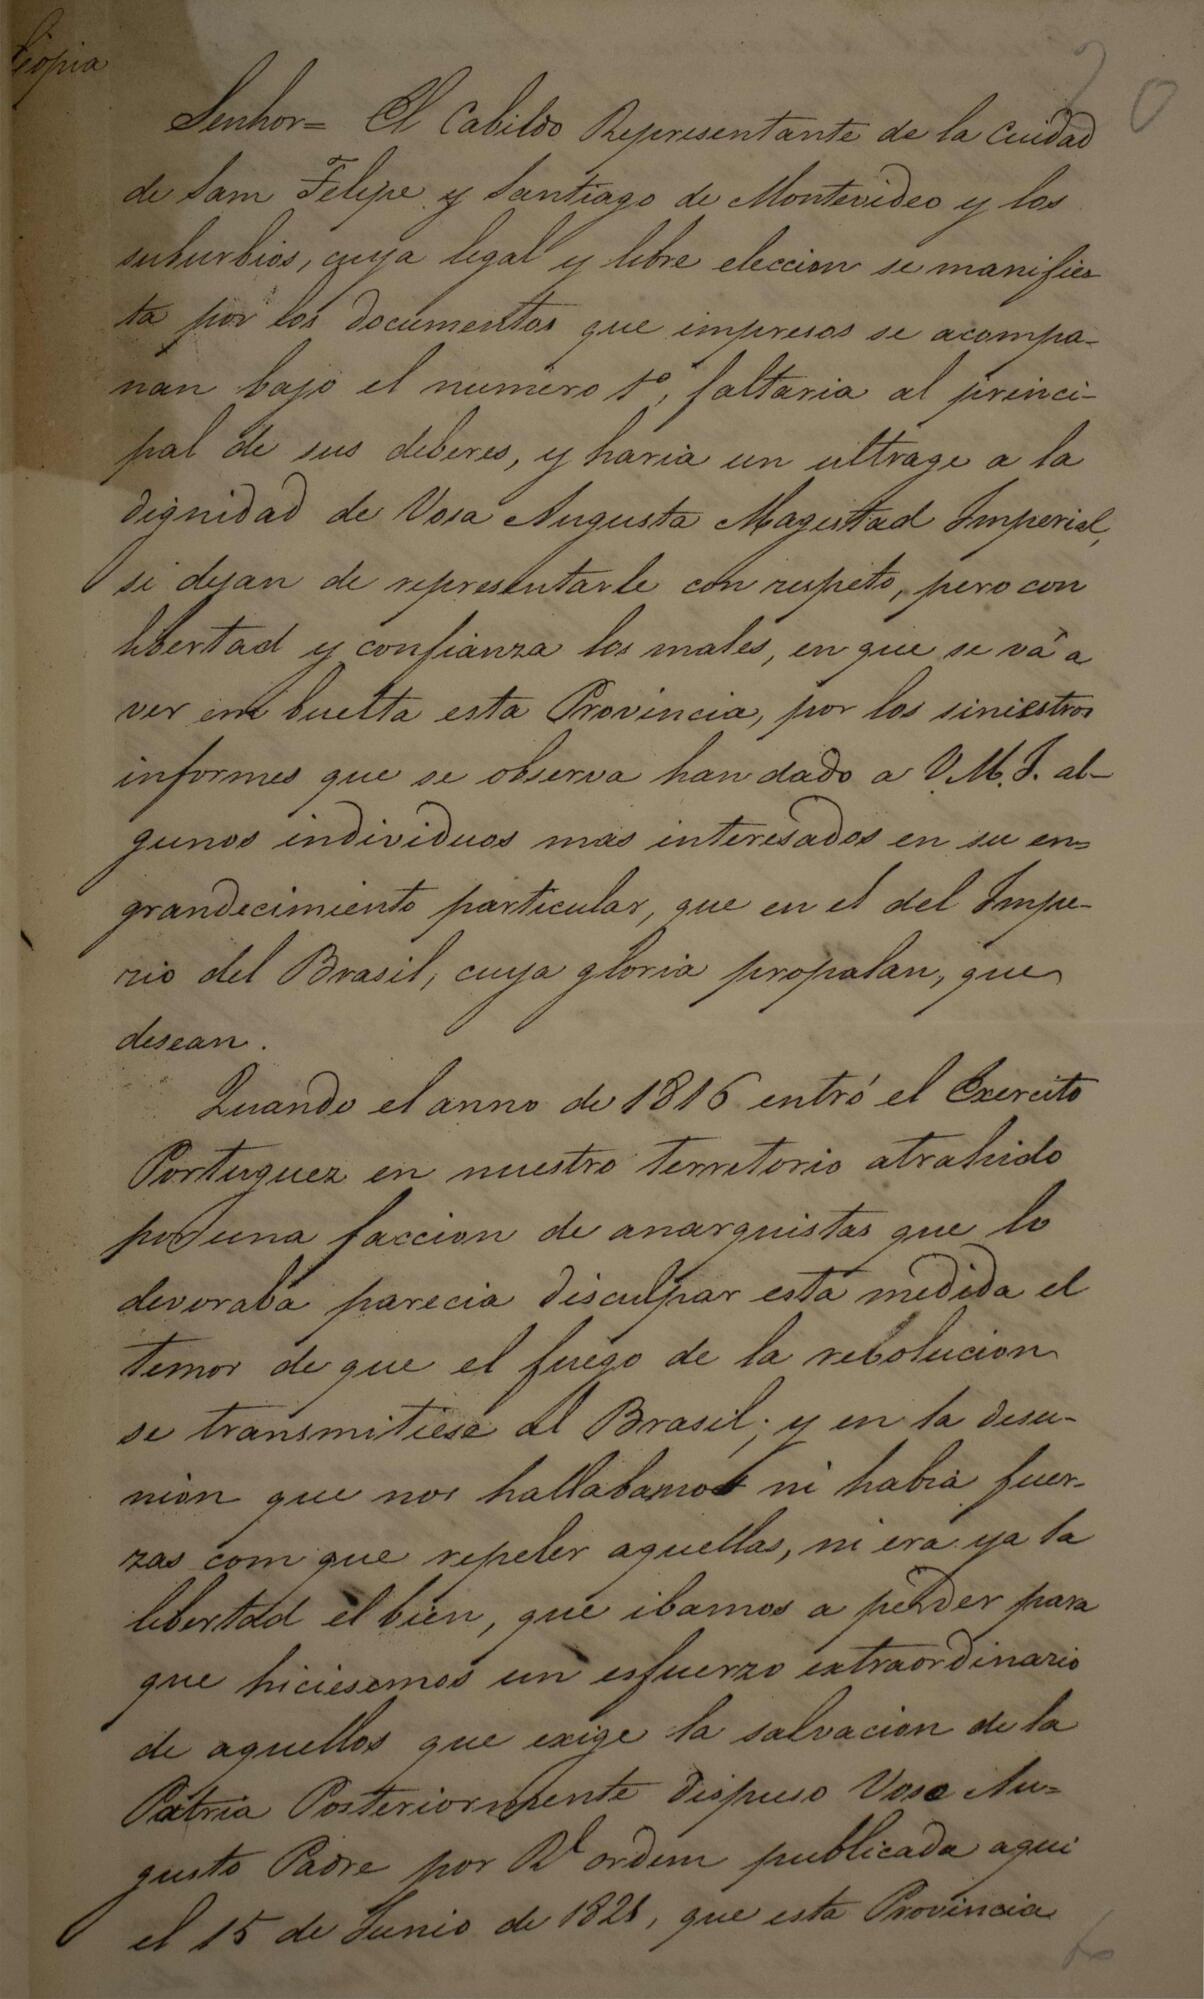 Copia
20
Senhor= El Cabildo Representante de la Cuidad
de Sam Felipe y Santiago de Montevideo y los
suburbios, cuya legal y libre eleccion se manifies
ta por los documentos que impresos se acompa-
nan bajo el numero 1º, faltaria al princi-
pal de sus deberes, y haria un ultrage a la
dignidad de Vosa Augusta Magestad Imperial,
si dejan de representarle con respeto, pero con
libertad y confianza los males, en que se vá a
ver em buelta esta Provincia, por los siniestros
informes que se observa han dado a V. M. I. al-
gunos individuos mas interesados en su en=
grandecimiento particular, que en el del Impe-
rio del Brasil, cuya gloria propalan, que
desean.
Quando el anno de 1816 entró el Exercito
Portuguez en nuestro territorio atrahido
por una faccion de anarquistas que lo
devoraba parecia disculpar esta medida el
temor de que el fuego de la rebolucion
se transmitiese al Brasil; y en la desu-
nion que nos hallabamos ni habia fuer-
zas com que repeler aquellas, ni era ya la
libertad el bien, que ibamos a perder para
que hiciesemos un esfuerzo extraordinario
de aquellos que exige la salvacion de la
Patria Posteriormente dispuso Voso Au=
gusto Padre por Rl ordem publicada aqui
el 15 de Junio de 1821, que esta Provincia